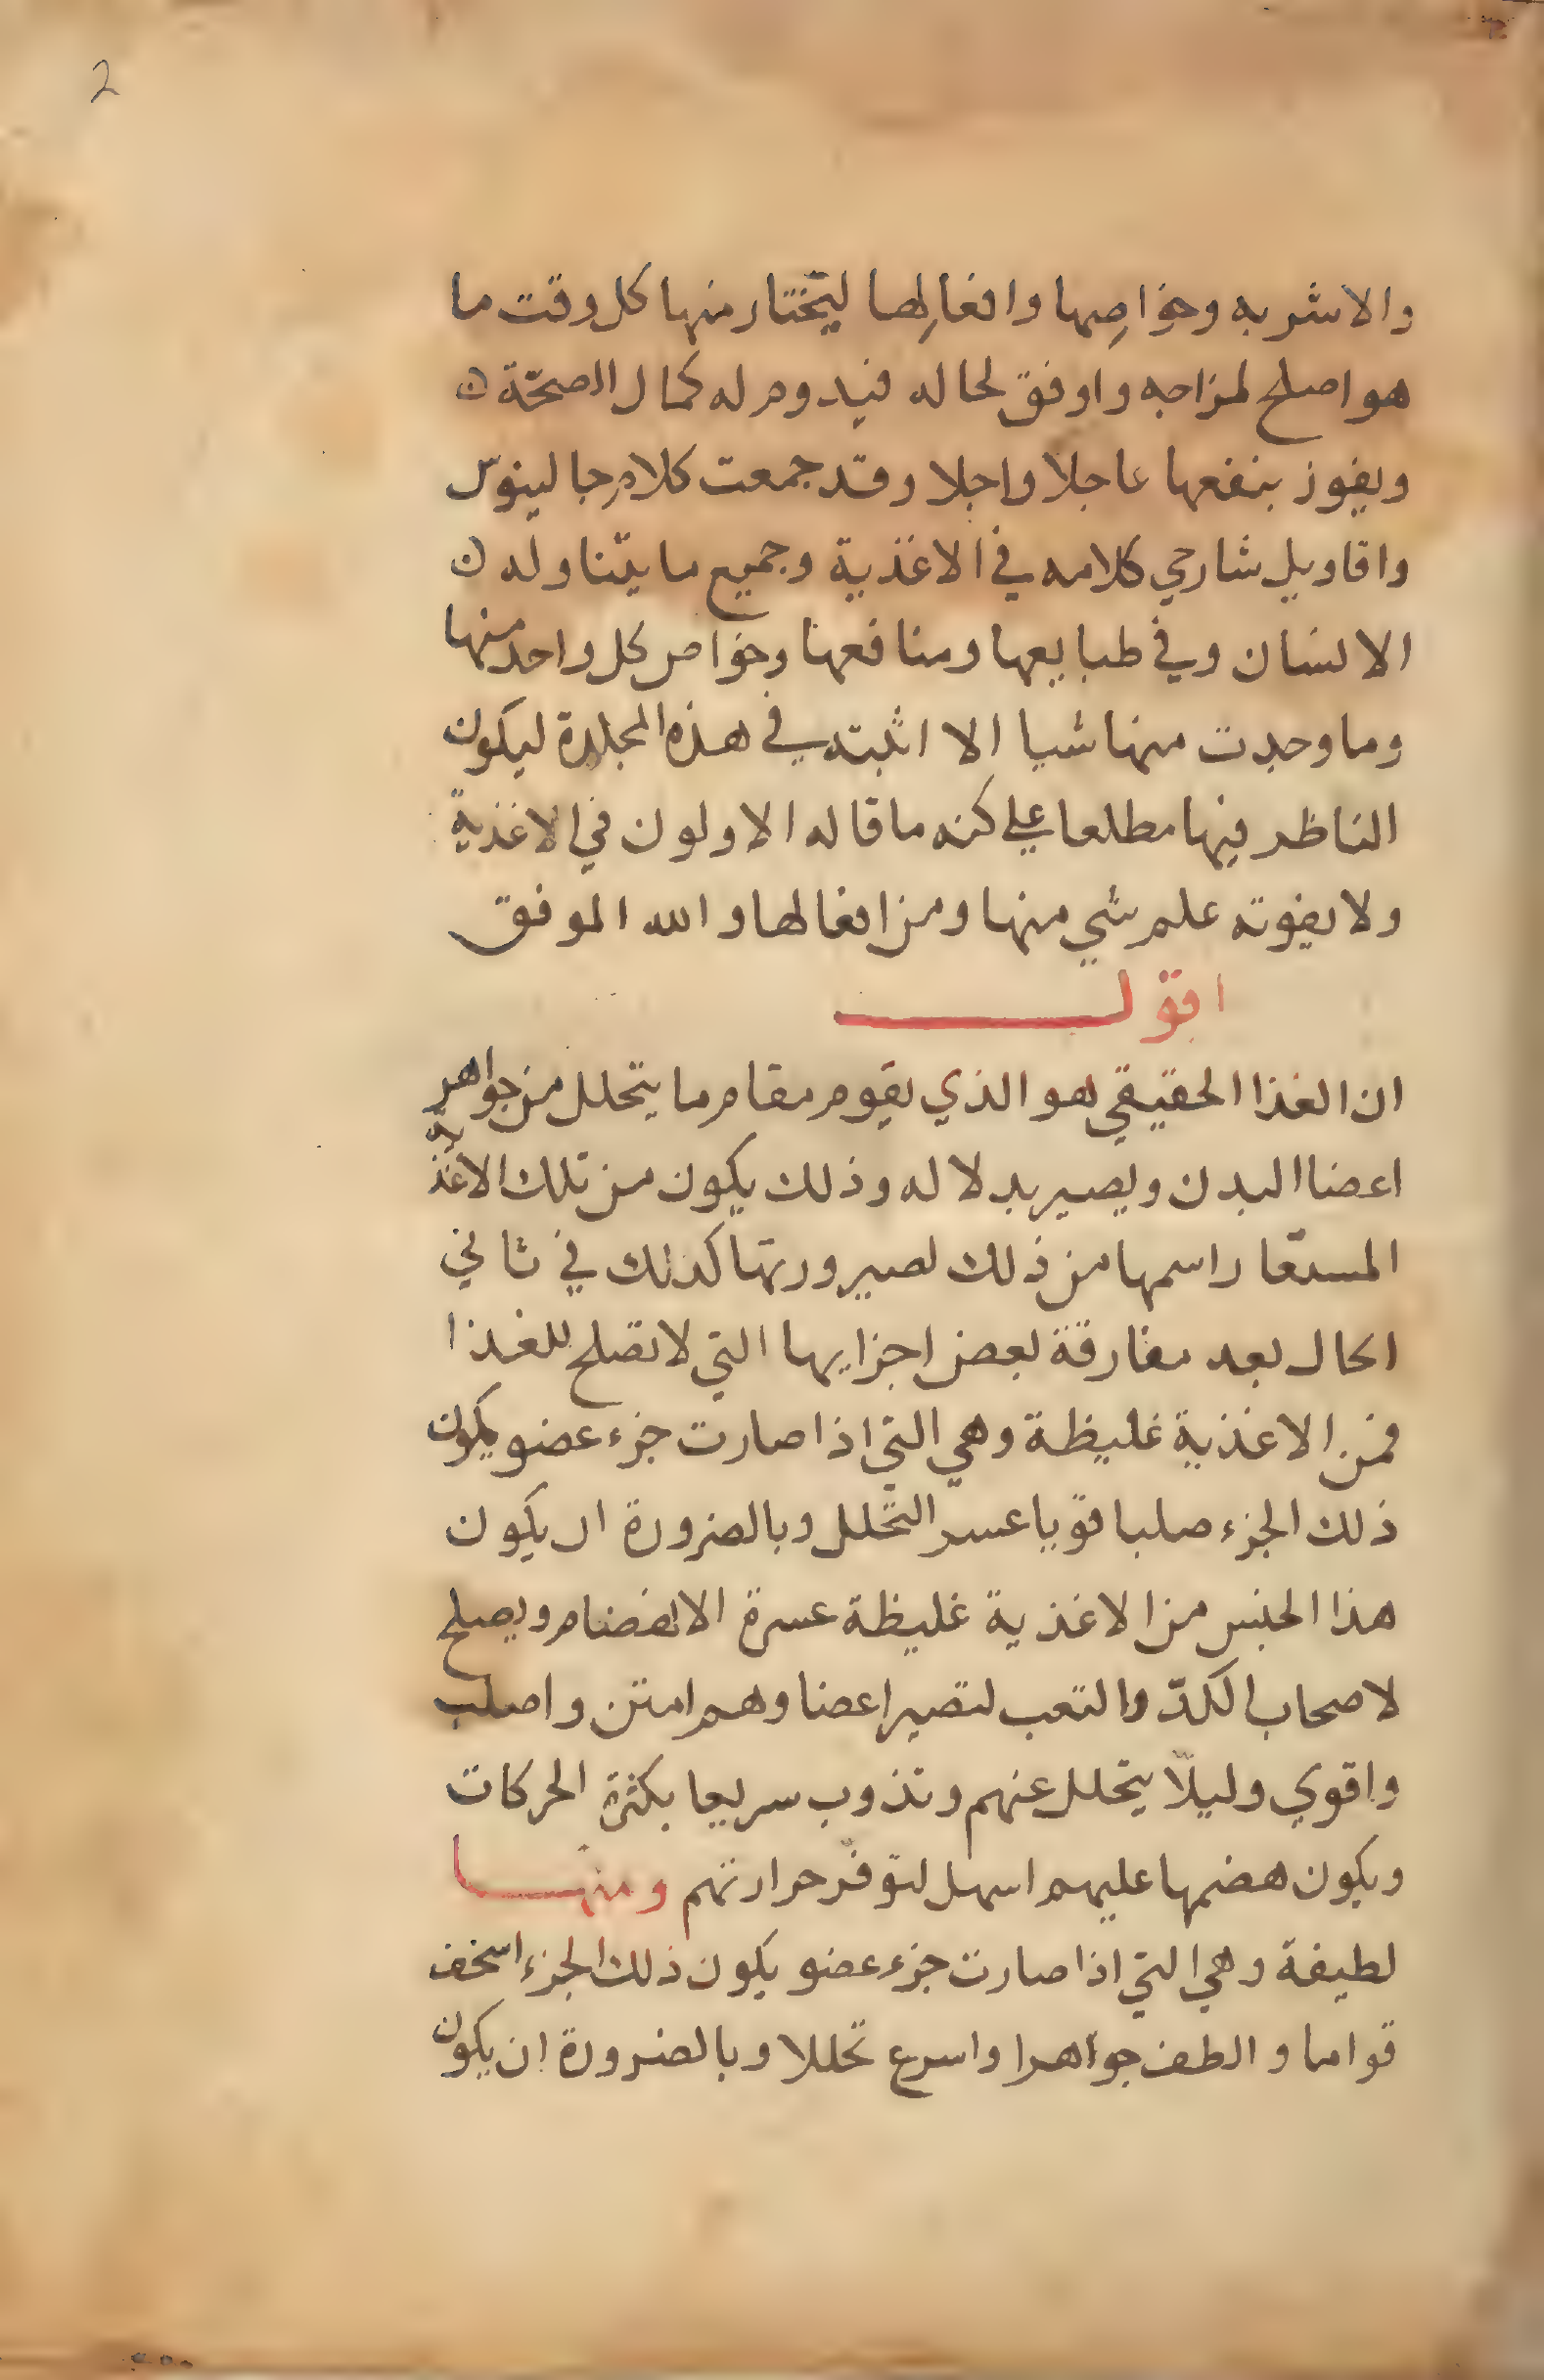 2
والاشربه وخواصِها وافعالِها ليتختار منها كل وقت ما
هو اصلح لمزاجه واوفق لحاله فيدوم له كمال الصحّة
ويفوز بنفعها عاجلا واجلا وقد جمعت كلام جالينوس
واقاويل شارحي كلامه في الاغذية وجميع ما يتناوله
الانسان وفي طبايعها ومنافعها وخواص كل واحد منها
وما وجدت منها شيا الا اثبته في هذه المجلدة ليكون
الناظر فيها مطلعا علي كنه ما قاله الاولون في الاغذية
ولا يفوته علم شي منها ومن افعالها والله الموفق
اقول
ان الغذا الحقيقي هو الذي يقوم مقام ما يتحلل من جواهر
اعضا البدن ويصير بدلا له وذلك يكون من تلك الاغذية
المستعار اسمها من ذلك لصيرورتها كذلك في ثاني
الحال بعد مفارقة بعض اجزايها التي لا تصلح للغذا
فمن الاغذية غليظة وهي التي اذا صارت جزء عضو يكون
ذلك الجزء صلبا قويا عسر التحلل وبالضرورة ان يكون
هذا الجنس من الاغذية غليظة عسرة الانهضام ويصلح
لاصحاب الكدّ والتعب لتصير اعضاوهم امتن واصلب
واقوي وليلّا يتحلل عنهم وتذوب سريعا بكثرة الحركات
ويكون هضمها عليهم اسهل لتوفّر حرارتهم ومنها
لطيفة وهي التي اذا صارت جزء عضو يكون ذلك الجزء اسخف
قواما والطف جواهرا واسرع تحللا وبالضرورة ان يكون